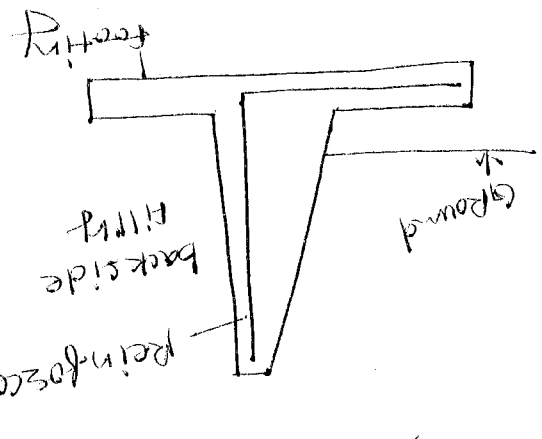 Reinforce
backside
filling
Ground
footing